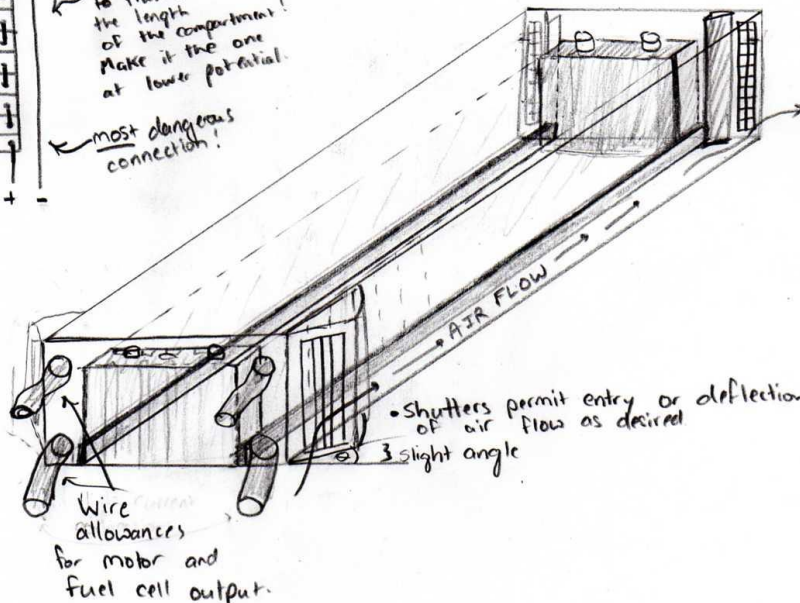 the length
of the compartment!
Make it the one
at lower potential.
most dangerous
connection!
+ -
AIR FLOW
• Shutters permit entry or deflection
of air flow as desired
} slight angle
Wire
allowances
for motor and
fuel cell output.